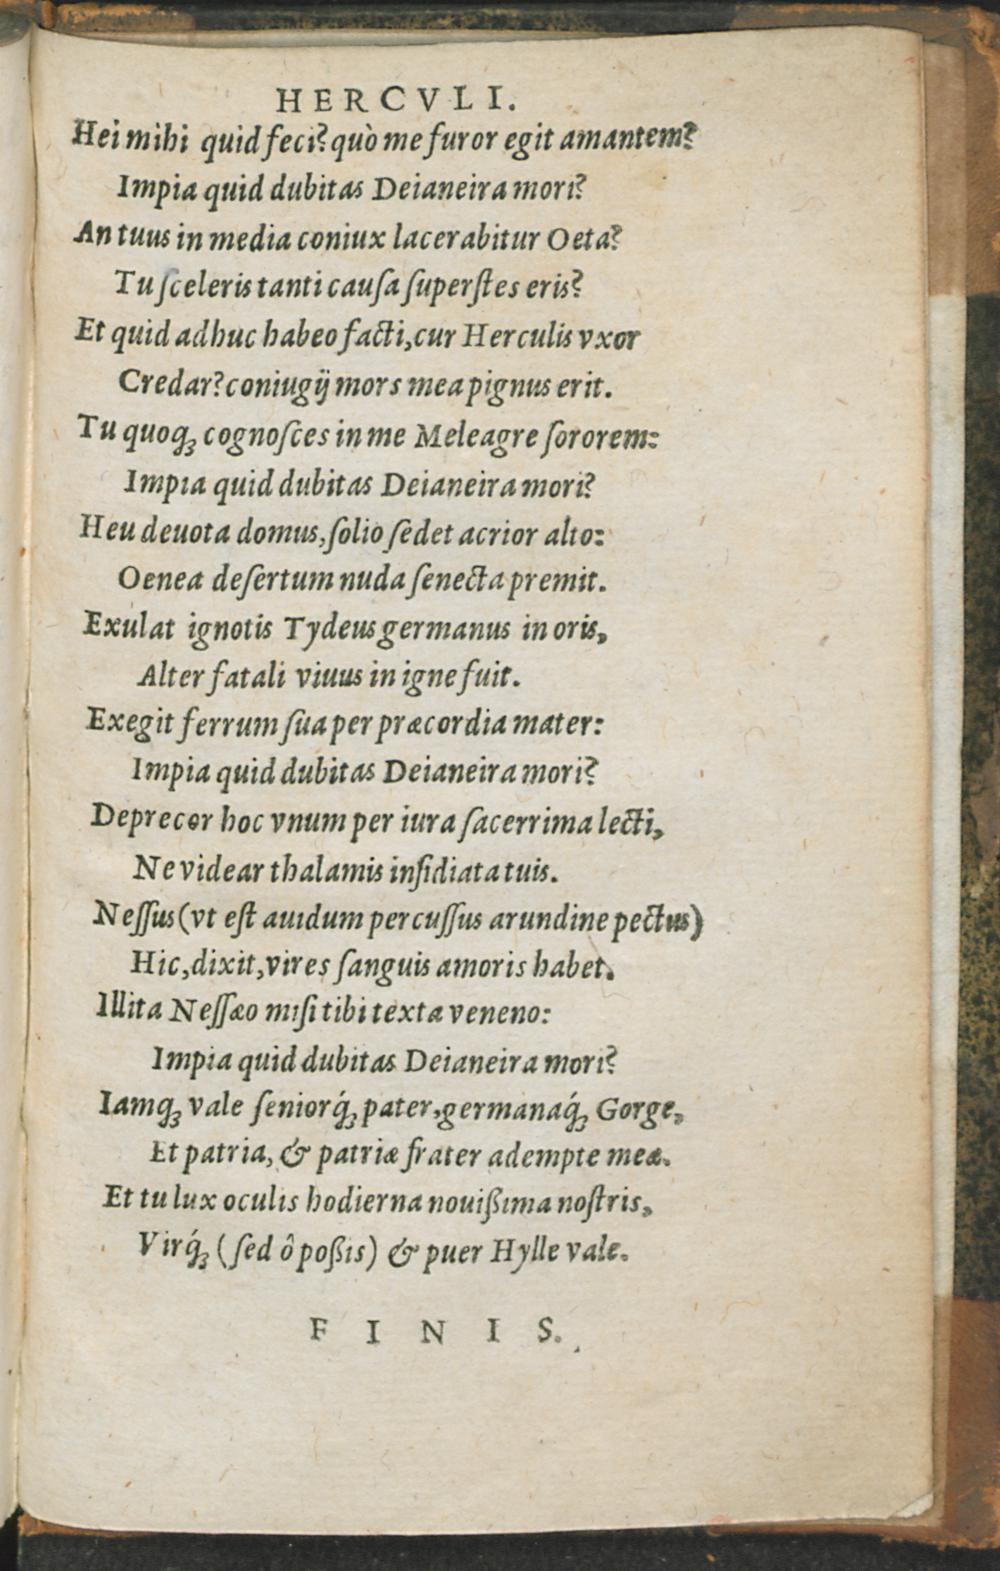 HERCVLI.
Hei mihi quid feci? quò me furor egit amantem?
Impia quid dubitas Deianeira mori?
An tuus in media coniux lacerabitur Oeta?
Tu ſceleris tanti cauſa ſuperſtes eris?
Et quid adhuc habeo facti, cur Herculis vxor
Credar? coniugij mors mea pignus erit.
Tu quoq; cognoſces in me Meleagre ſororem:
Impia quid dubitas Deianeira mori?
Heu deuota domus, ſolio ſedet acrior alto:
Oenea deſertum nuda ſenecta premit.
Exulat ignotis Tydeus germanus in oris,
Alter fatali viuus in igne fuit.
Exegit ferrum ſua per præcordia mater:
Impia quid dubitas Deianeira mori?
Deprecor hoc vnum per iura ſacerrima lecti,
Ne videar thalamis inſidiata tuis.
Neſſus (vt eſt auidum percuſſus arundine pectus)
Hic, dixit, vires ſanguis amoris habet.
Illita Neſſæo miſi tibi texta veneno:
Impia quid dubitas Deianeira mori?
Iamq; vale ſeniorq́; pater, germanaq́; Gorge,
Et patria, & patriæ frater adempte meæ.
Et tu lux oculis hodierna nouißima noſtris,
Virq́; (ſed ô poßis) & puer Hylle vale.
F I N I S.